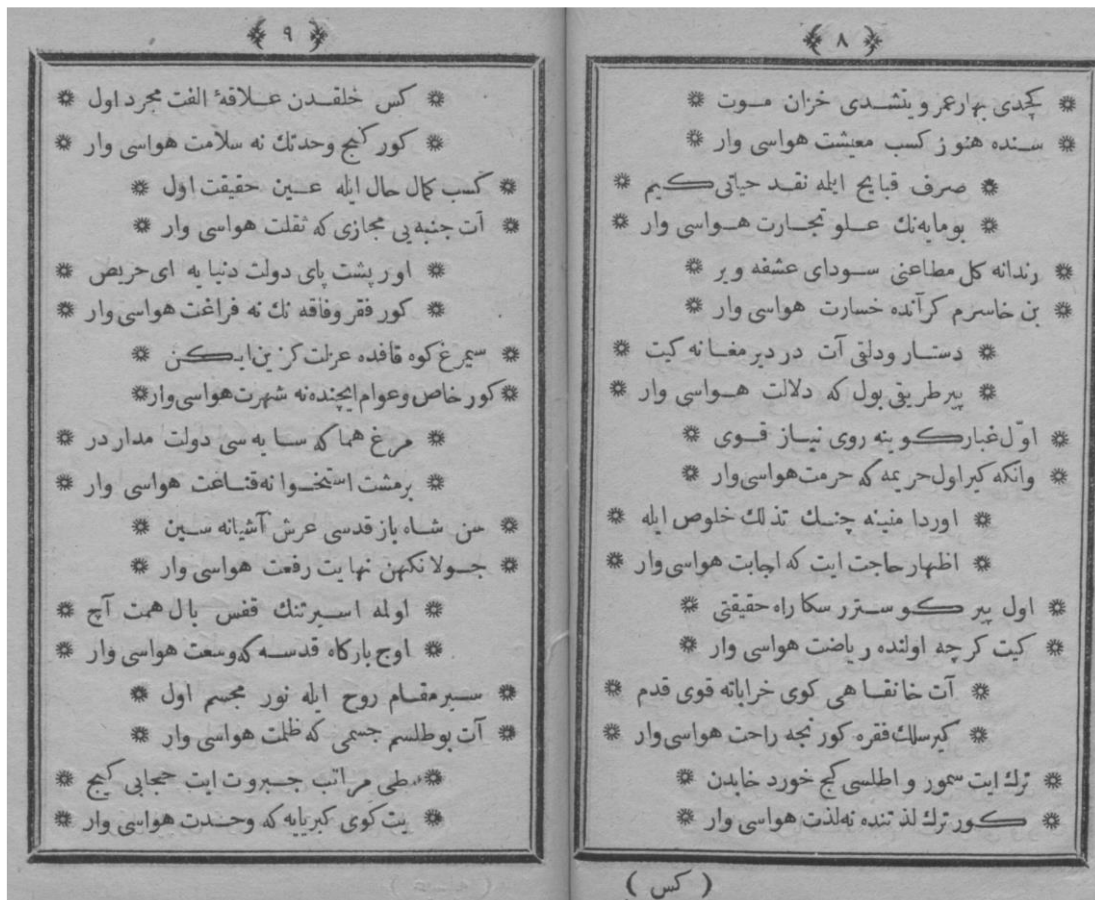 ﴿ ٨ ﴾
کچدی بهار عمر و یتشدی خزان موت
سنده هنوز کسب معیشت هواسی وار
صرف قبایح ایله نقد حیاتی کیم
بومایه‌نك علو تجارت هواسی وار
رندانه کل مطاعنی سودای عشقه ویر
بن خاسرم کرآنده خسارت هواسی وار
دستار ودلقی آت در دیر مغانه کیت
پیرطریقی بول که دلالت هواسی وار
اوّل غبارکوینه روی نیاز قوی
وانکه کیر اول حریمه که حرمت هواسی وار
اوردا منینه چنك تذلك خلوص ایله
اظهار حاجت ایت که اجابت هواسی وار
اول پیر کوسترر سکا راه حقیقتی
کیت کرچه اولنده ریاضت هواسی وار
آت خانقاهی کوی خراباته قوی قدم
کیرسلك فقره کور نجه راحت هواسی وار
ترك ایت سمور و اطلسی کج خورد خابدن
کور ترك لذتنده نه‌لذت هواسی وار
( کس )
﴿ ٩ ﴾
کس خلقدن علاقهٔ الفت مجرد اول
کور کنج وحدتك نه سلامت هواسی وار
کسب کمال حال ایله عین حقیقت اول
آت جنبه‌یی مجازی که ثقلت هواسی وار
اورپشت پای دولت دنیا یه ای حریص
کور فقر وفاقه نك نه فراغت هواسی وار
سیمرغ کوه قافده عزلت کزین ایکن
کور خاص وعوام ایچنده نه شهرت هواسی وار
مرغ هما که سایه سی دولت مدار در
برمشت استخوانه قناعت هواسی وار
سن شاه باز قدسی عرش آشیانه سین
جولانکهن نهایت رفعت هواسی وار
اولمه اسیرتنك قفس بال همت آچ
اوج بارکاه قدسه که وسعت هواسی وار
سیرمقام روح ایله نور مجسم اول
آت بوطلسم جسمی که ظلمت هواسی وار
طی مراتب جبروت ایت حجابی کیج
یت کوی کبریایه که وحدت هواسی وار